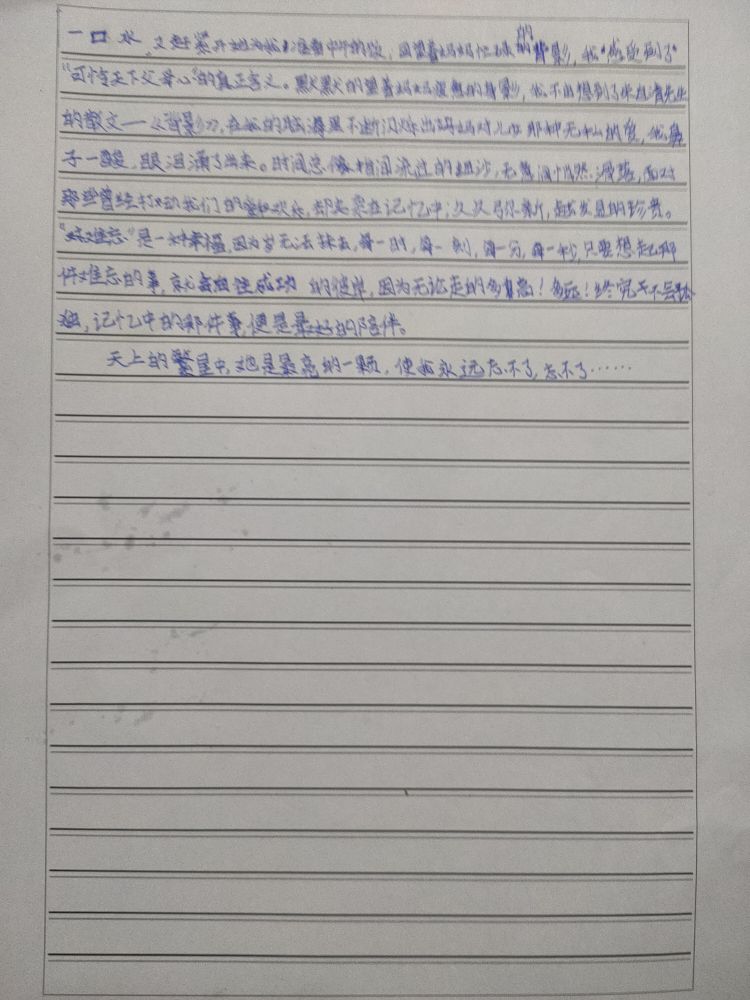 一口水,又赶紧开始为我们准备中午的饭,回望着妈妈忙碌的背影,我"感受到了"
"可怜天下父母心"的真正含义。默默的望着妈妈疲惫的背影,我不由想到了朱自清先生
的散文——《背影》,在我的脑海里不断闪烁出妈妈对儿女那种无私的爱,我鼻
子一酸,眼泪涌了出来。时间总像指间流过的细沙,无意间悄然滑落,面对
那些曾经打动我们的和欢乐,却总萦在记忆中,久久弥新,越发显的珍贵。
"难忘"是一种幸福,因为岁无法抹去,每一时,每一刻,每一分,每一秒,只要想起那
件难忘的事,就成功的彼岸,因为无论走的多高!多远!终究不会孤
独,记忆中的那件事,便是最好的陪伴。
天上的繁星中,她是最亮的一颗,使我永远忘不了,忘不了……